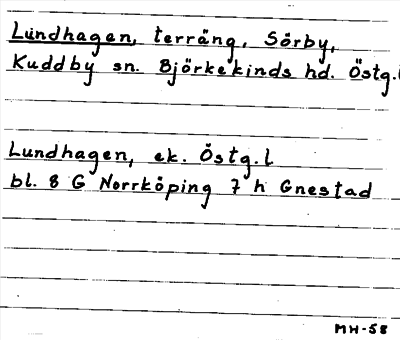 Lundhagen, terräng, Sörby,
Kuddby sn. Björkekinds hd. Östg.l
Lundhagen, ek. Östg.l
bl. 8 G Norrköping 7 h Gnestad
MH-58